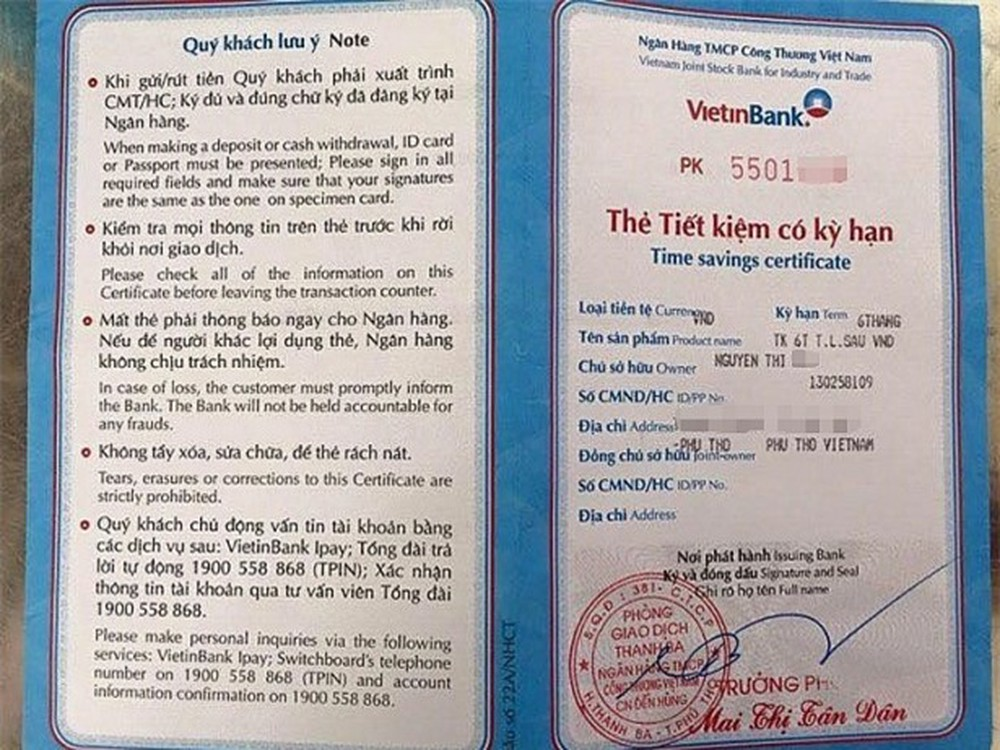 Quý khách lưu ý Note
Khi gửi/rút tiền Quý khách phải xuất trình
CMT/HC; Ký đủ và đúng chữ ký đã đăng ký tại
Ngân hàng.
When making a deposit or cash withdrawal, ID card
or Passport must be presented; Please sign in all
required fields and make sure that your signatures
are the same as the one on specimen card.
Kiểm tra mọi thông tin trên thẻ trước khi rời
khỏi nơi giao dịch.
Please check all of the information on this
Certificate before leaving the transaction counter.
Mất thẻ phải thông báo ngay cho Ngân hàng.
Nếu để người khác lợi dụng thẻ, Ngân hàng
không chịu trách nhiệm.
In case of loss, the customer must promptly inform
the Bank. The Bank will not be held accountable for
any frauds.
Không tẩy xóa, sửa chữa, để thẻ rách nát.
Tears, erasures or corrections to this Certificate are
strictly prohibited.
Quý khách chủ động vấn tin tài khoản bằng
các dịch vụ sau: VietinBank Ipay; Tổng đài trả
lời tự động 1900 558 868 (TPIN); Xác nhận
thông tin tài khoản qua tư vấn viên Tổng đài
1900 558 868.
Please make personal inquiries via the following
services: VietinBank Ipay; Switchboard's telephone
number on 1900 558 868 (TPIN) and account
information confirmation on 1900 558 868.
số 22A/NHCT
Ngân Hàng TMCP Công Thương Việt Nam
Vietnam Joint Stock Bank for Industry and Trade
VietinBank
PK 5501
Thẻ Tiết kiệm có kỳ hạn
Time savings certificate
Loại tiền tệ Currency VND Kỳ hạn Term 6THANG
Tên sản phẩm Product name TK 6T T.L.SAU VND
Chủ sở hữu Owner NGUYEN THI
130258109
Số CMND/HC ID/PP No.
Địa chỉ Address
-PHU THO PHU THO VIETNAM
Đồng chủ sở hữu Joint-owner
Số CMND/HC ID/PP No.
Địa chỉ Address
Nơi phát hành Issuing Bank
Ký và đóng dấu Signature and Seal
Ghi rõ họ tên Full name
S.Q.D : 381- C.T.C.P
PHÒNG
GIAO DỊCH
THANH BA
NGÂN HÀNG TMCP
CÔNG THƯƠNG VIỆT NAM
CN ĐỀN HÙNG
H.THANH BA - T.PHÚ THỌ
TRƯỞNG PH
Mai Thị Tân Dân